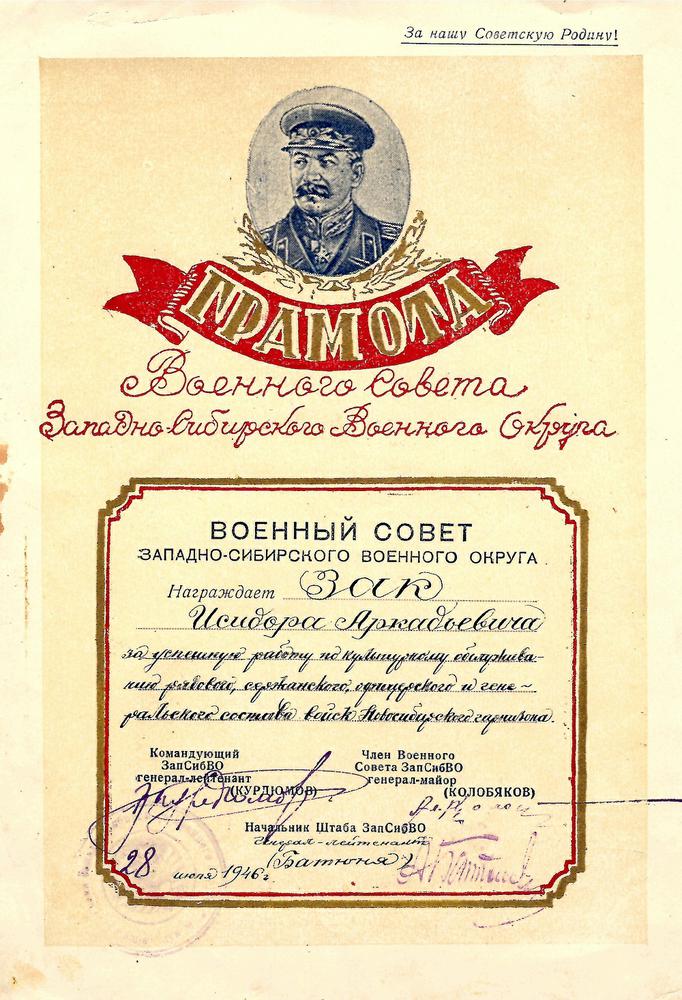 За нашу Советскую Родину!
ГРАМОТА
Военного Совета
Западно-Сибирского Военного Округа
ВОЕННЫЙ СОВЕТ
ЗАПАДНО-СИБИРСКОГО ВОЕННОГО ОКРУГА
Награждает Зак
Исидора Аркадьевича
за успешную работу по культурному обслужива-
нию рядовой, сержанского, офицерского и гене-
ральского состава войск Новосибирского гарнизона.
Командующий
ЗапСибВО
генерал-лейтенант
(КУРДЮМОВ)
Член Военного
Совета ЗапСибВО
генерал-майор
(КОЛОБЯКОВ)
Начальник Штаба ЗапСибВО
генерал-лейтенант
(Батюня)
28 июля 1946 г